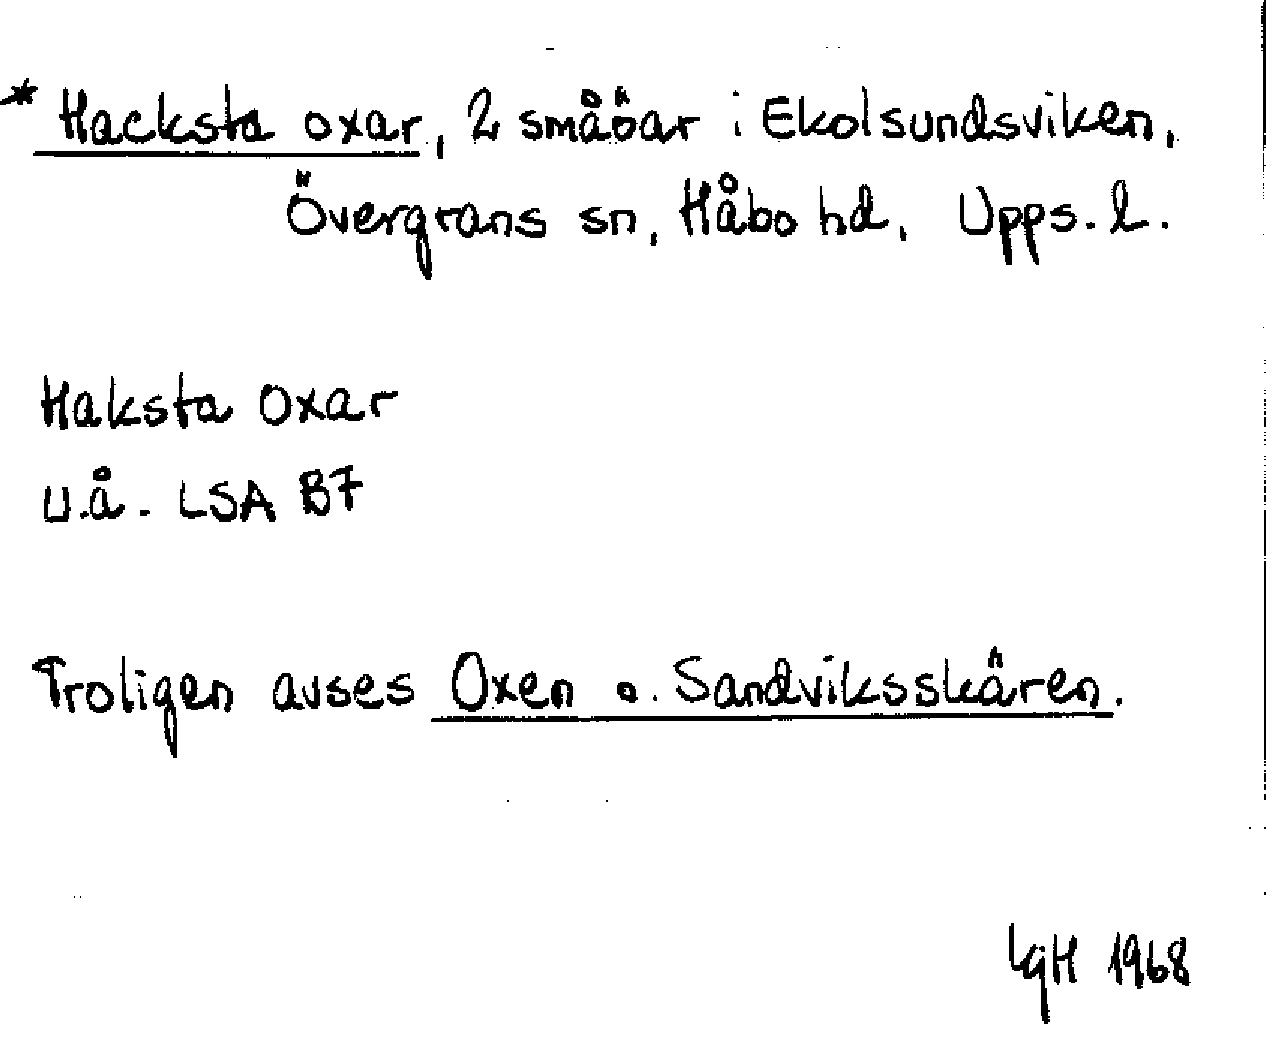 * Hacksta oxar, 2 småöar i Ekolsundsviken,
Övergrans sn, Håbo hd, Upps. l.
Haksta Oxar
U.å. LSA B7
Troligen avses Oxen o. Sandviksskären.
IgH 1968